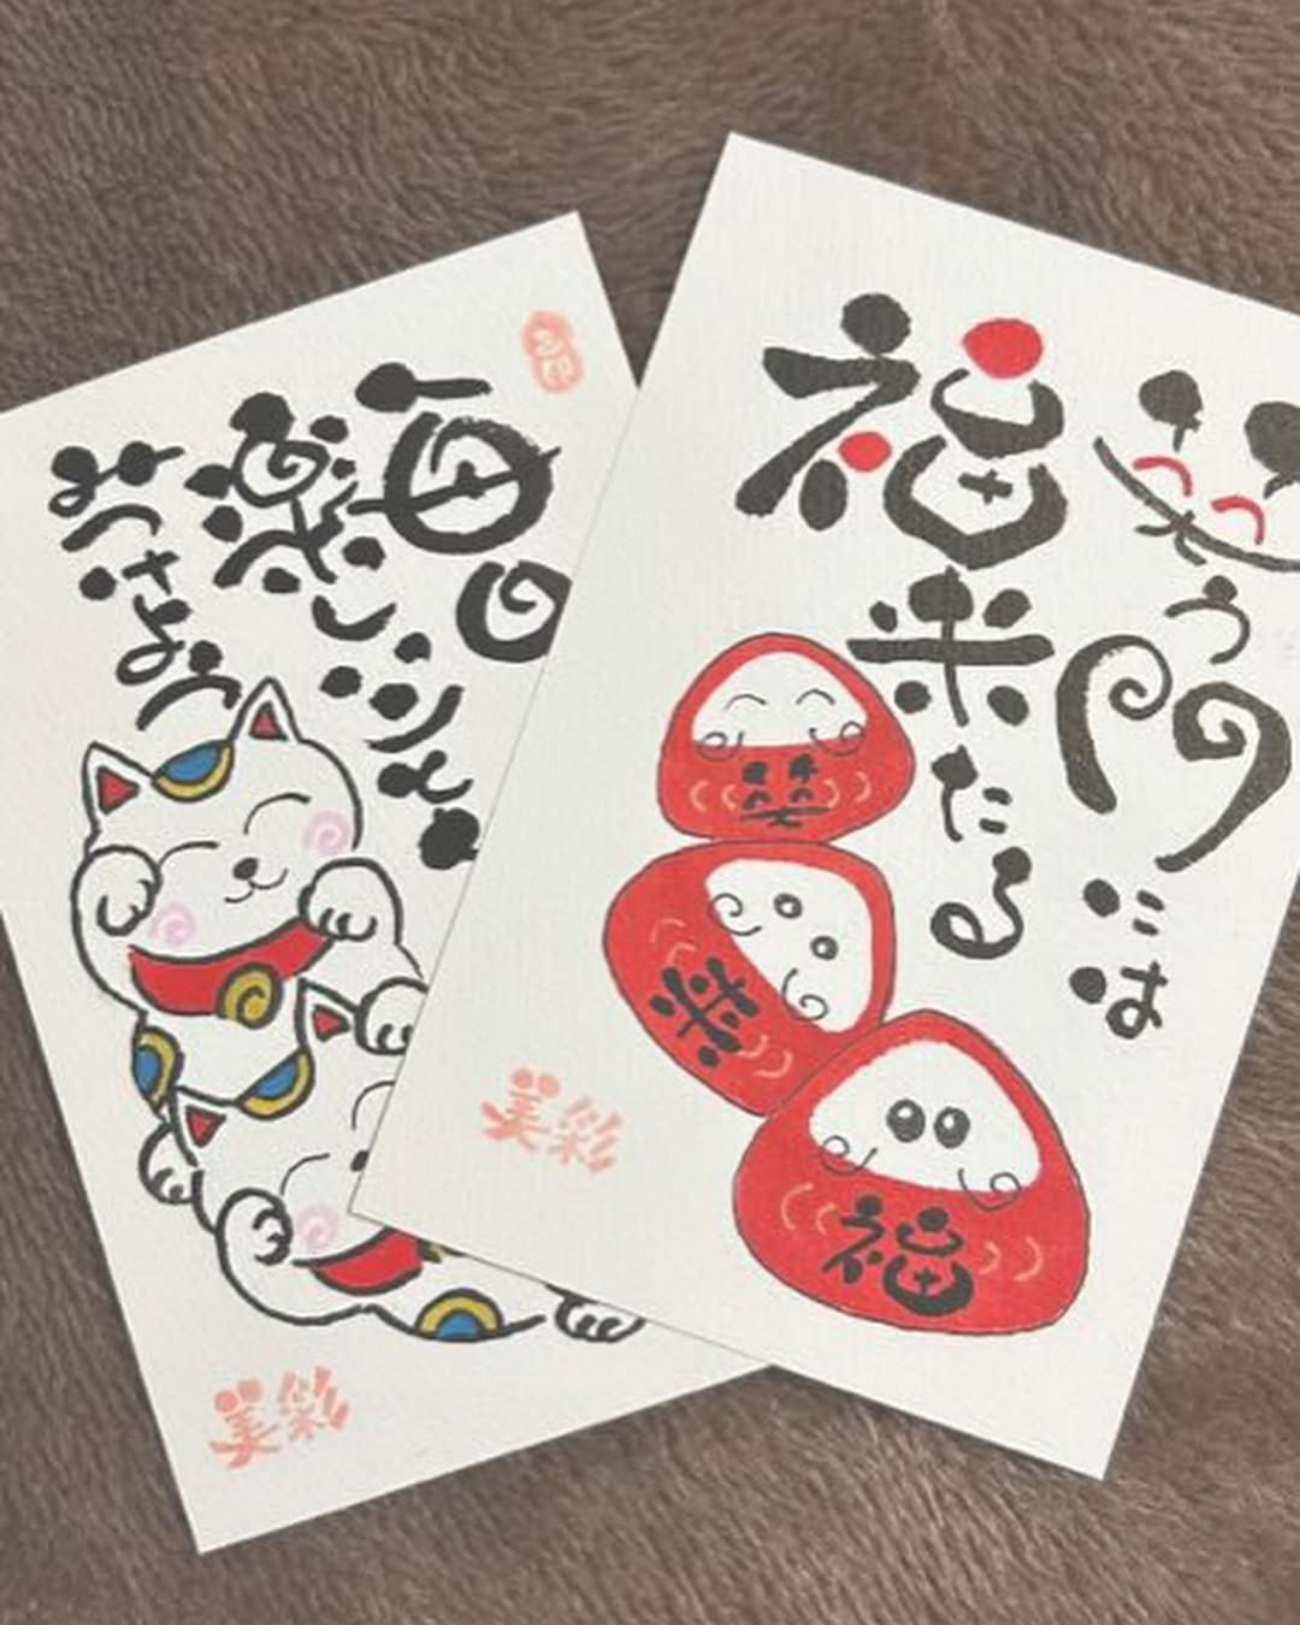 毎日
楽しいこと
みつけよう
美彩
笑う門には
福来たる
笑
来
福
美彩